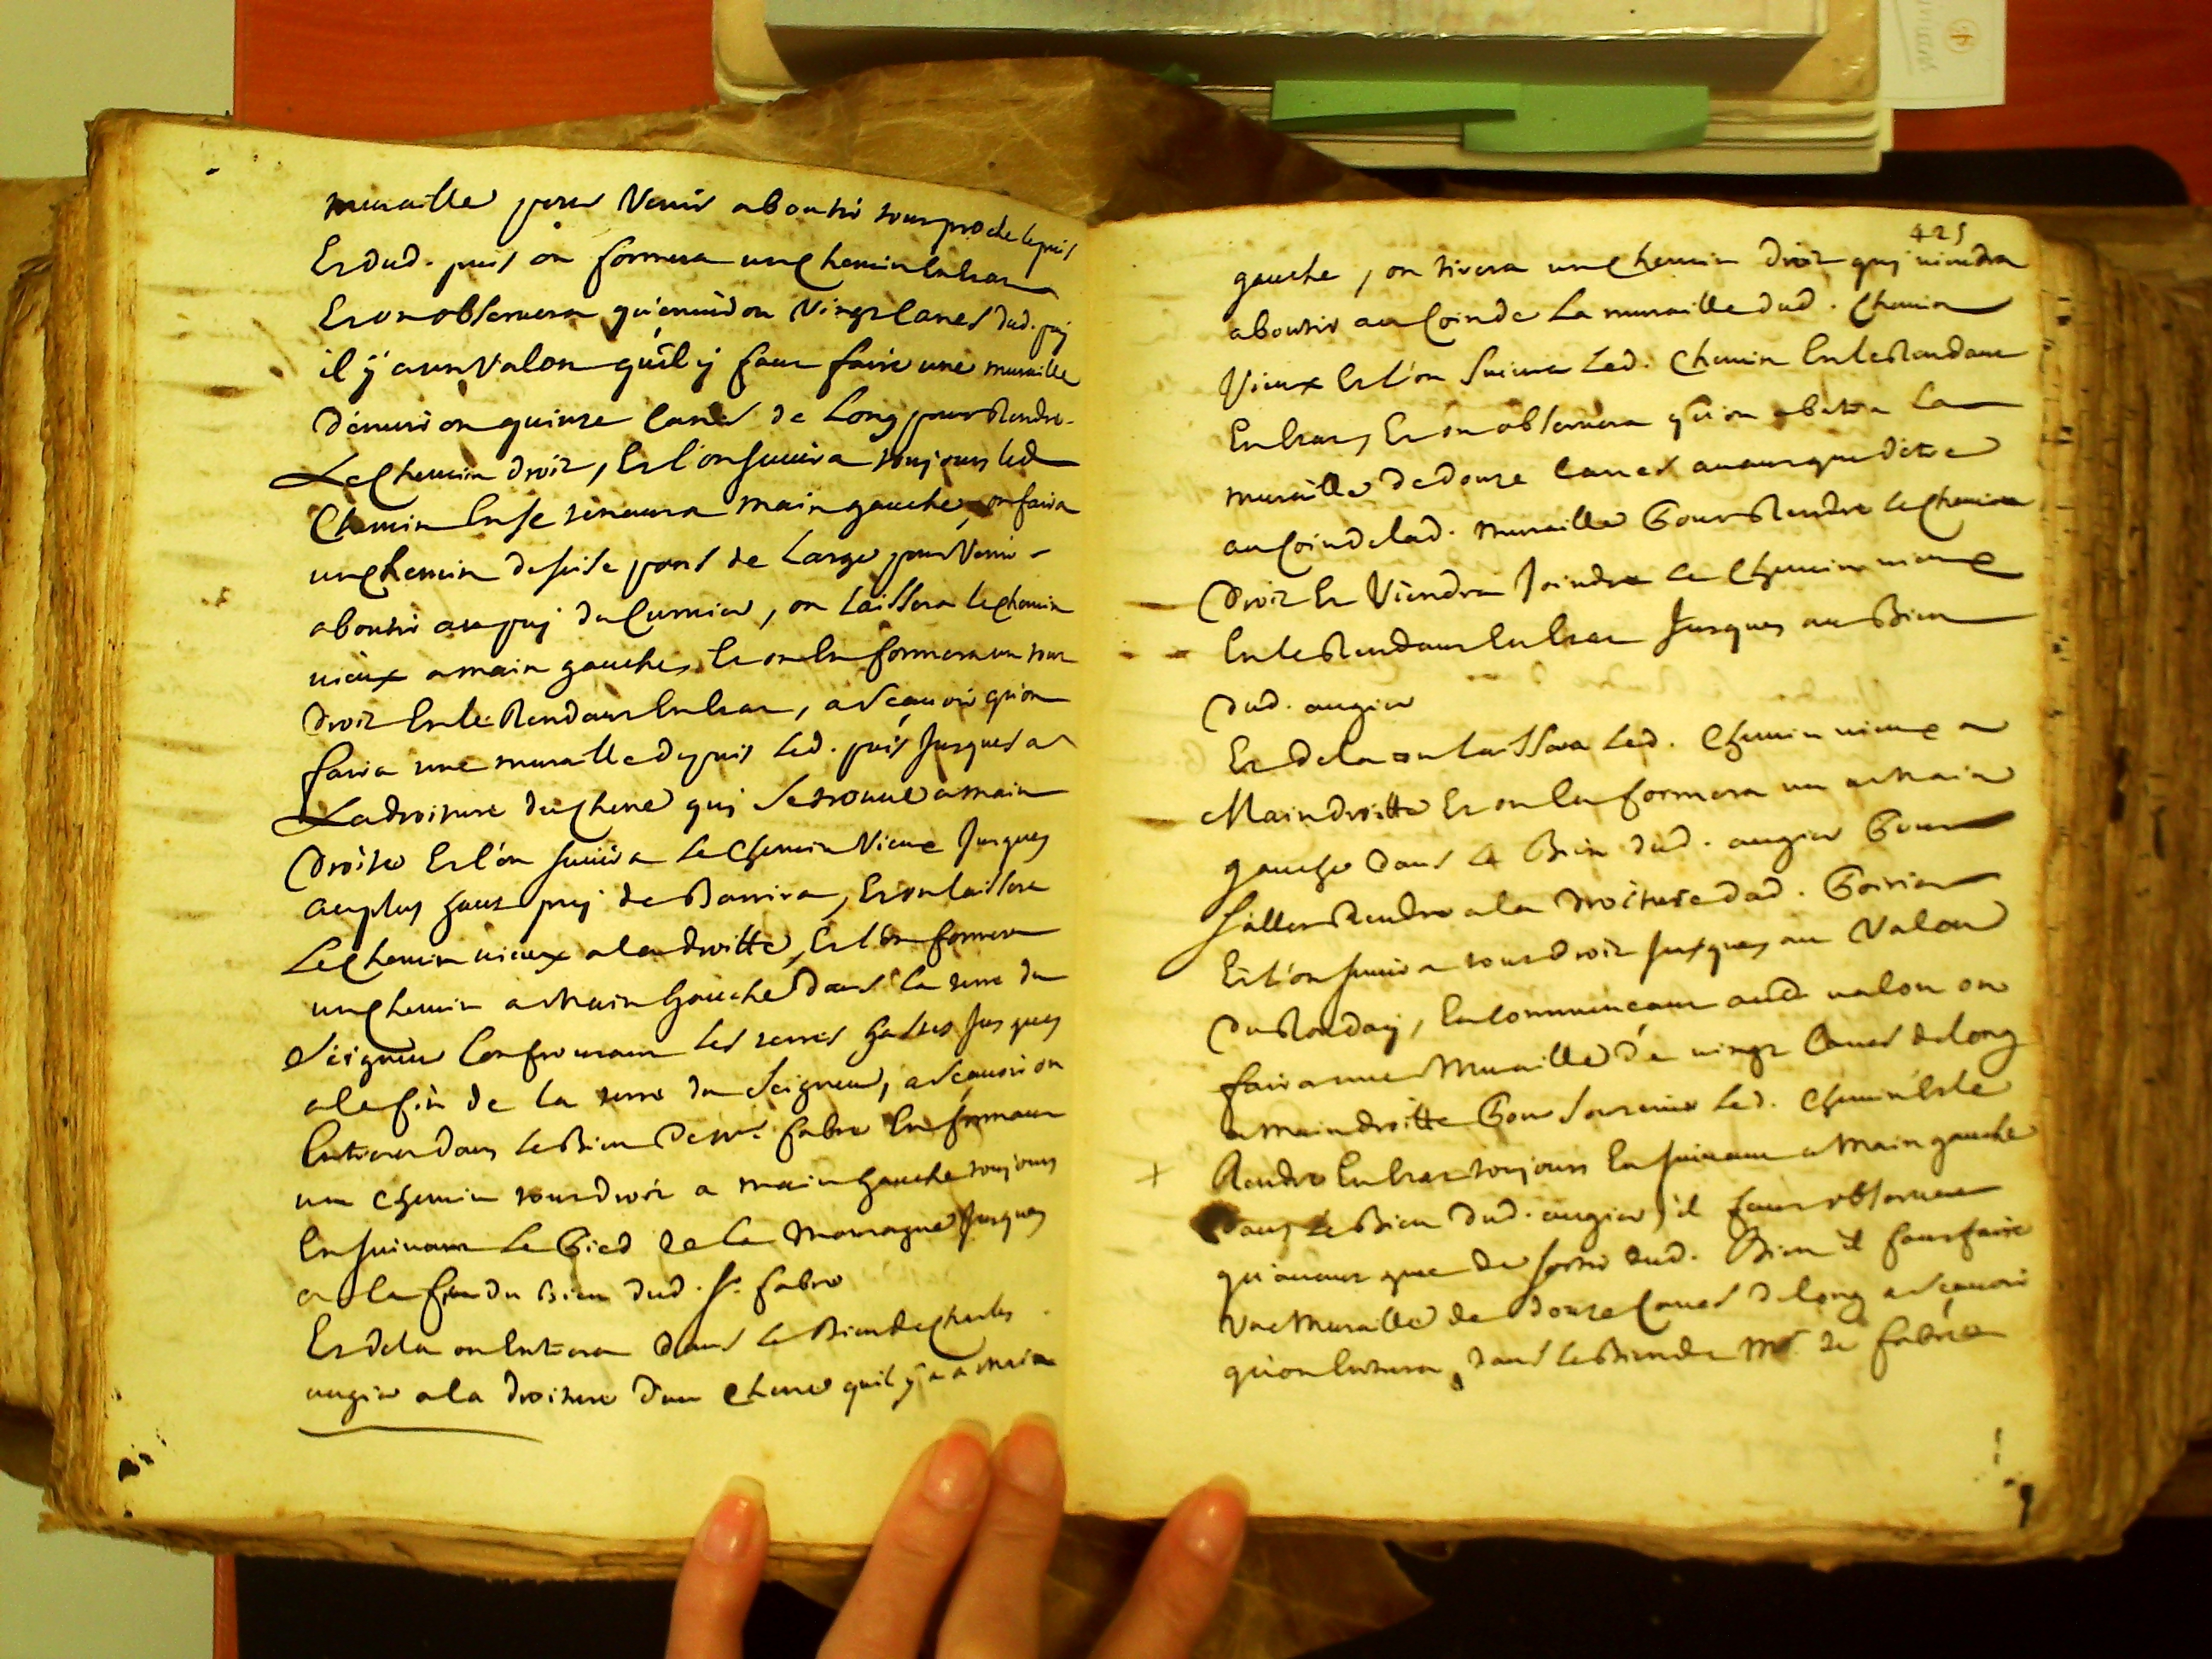 muraille pour Venir aboutir tout proche le puis
Et dud. puis on formera un chemin en bas
Et on observera qu'enuiron Vingt canes dud. puj
il y a un Valon qu'il y faut faire une muraille
d'enuiron quinze canes de Long pour Rendre
Le chemin droit, Et l'on suiura toujours led
Chemin En se tenant a main gauche, on faira
un chemin de seise pans de Large pour Venir
aboutir au puj du, on Laissera le chemin
vieux a main gauche, Et on En formera un tout
droit En le Rendant En bas, a Scauoir qu'on
faira une muraille depuis Led. puis Jusques a
La droiture du chene quj Se trouue a main
droite Et l'on suiura Le Chemin Vieux Jusques
au plus haut puj de Barrira, Et on laissera
Le chemin vieux a la droitte, Et l'on formera
un chemin a Main Gauche dans La terre du
Seigneur Confrontant Les terres gastes Jusques
a la fin de La terre du Seigneur, a Scauoir on
Entrera dans Le Bien de Mr. fabre En formant
un Chemin tout droit a main Gauche toujours
En suiuant Le Pied de La Montagne Jusques
a la fin du Bien dud. Sr. fabre
Et de la on Entrera dans Le Bien de Charles
augier a la droiture d'un Chene quil y a a Main
425
gauche, on tirera un chemin droit quj viendra
aboutir au Coin de La muraille dud. Chemin
Vieux Et l'on Suiura Led. Chemin En le Rendant
En bas, Et on observera qu'on abatra La
muraille de douze canes auant que d'etre
au Coin de lad. muraille Pour Rendre le Chemin
Droit Et Viendra Joindre Le Chemin vieux
En le Rendant En bas Jusques au Bien
Dud. augier
Et de la on laissera Led. Chemin vieux a
Main droitte Et on En formera un a Main
gauche Dans Le Bien dud. augier Pour
S'aller Rendre a la droiture dud.
Et l'on suiura tout droit Jusques au Valon
Du, En Commencant aud. valon on
faira une Muraille de vingt Canes de long
a main droitte Pour Soutenir Led. Chemin Et le
Rendre En bas toujours En suiuant a Main gauche
dans Le Bien Dud. augier, il faut observer
qu'auant que de sortir dud. Bien il faut faire
Une Muraille de douze Canes de long a Scauoir
qu'on Entrera dans Le Bien de Mr. de fabre